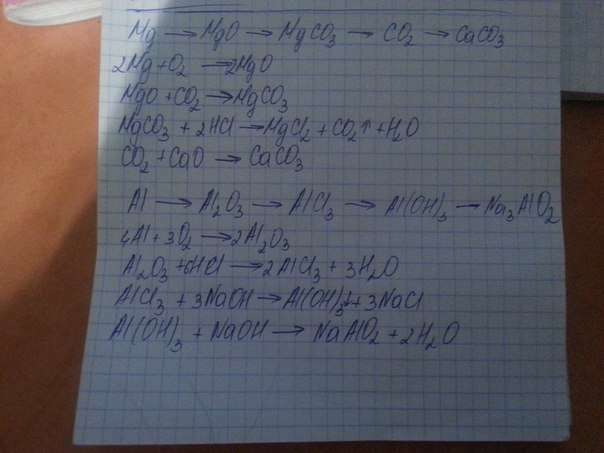 Mg → MgO → MgCO₃ → CO₂ → CaCO₃
2Mg + O₂ → 2MgO
MgO + CO₂ → MgCO₃
MgCO₃ + 2HCl → MgCl₂ + CO₂↑ + H₂O
CO₂ + CaO → CaCO₃
Al → Al₂O₃ → AlCl₃ → Al(OH)₃ → Na₃AlO₂
4Al + 3O₂ → 2Al₂O₃
Al₂O₃ + 6HCl → 2AlCl₃ + 3H₂O
AlCl₃ + 3NaOH → Al(OH)₃↓ + 3NaCl
Al(OH)₃ + NaOH → NaAlO₂ + 2H₂O